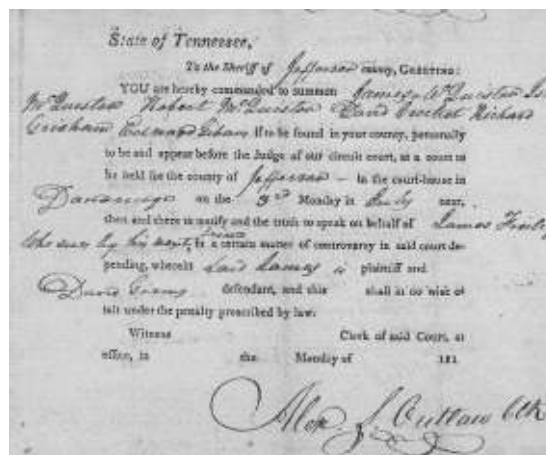 State of Tennessee,
To the Sheriff of Jefferson county, GREETING:
YOU are hereby commanded to summon James McQuister
McQuister Robert McQuister David Crocket Richard
Grisham Edward if to be found in your county, personally
to be and appear before the Judge of our circuit court, at a court to
be held for the county of Jefferson — in the court-house in
Dandridge on the 3rd Monday in July next,
then and there to testify and the truth to speak on behalf of James
who sues by his next friend in a certain matter of controversy in said court de-
pending, wherein said James is plaintiff and
David defendant, and this shall in no wise o-
mit under the penalty prescribed by law.
Witness Clerk of said Court, at
office, in the Monday of 181
Alex. J. Outlaw Clk